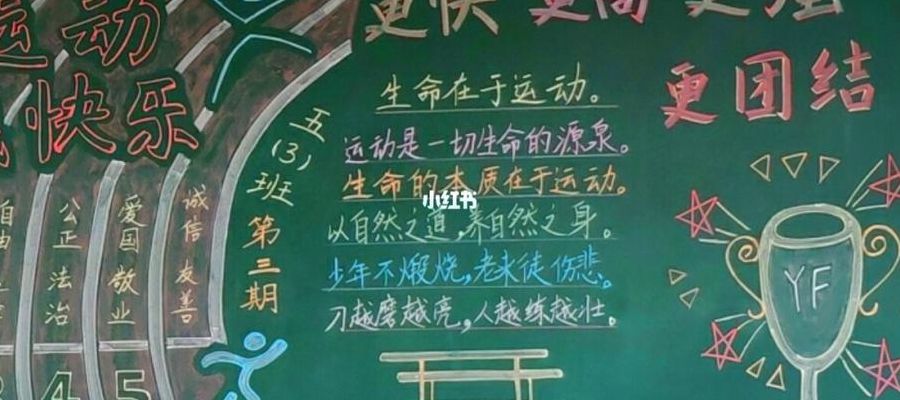 更快 更高 更强
更团结
运动
快乐
生命在于运动。
运动是一切生命的源泉。
生命的本质在于运动。
以自然之道,养自然之身。
少年不煅烧,老来徒伤悲。
刀越磨越亮,人越练越壮。
五(3)班第三期
自由
公正 法治
爱国 敬业
诚信 友善
4 5
YF
小红书